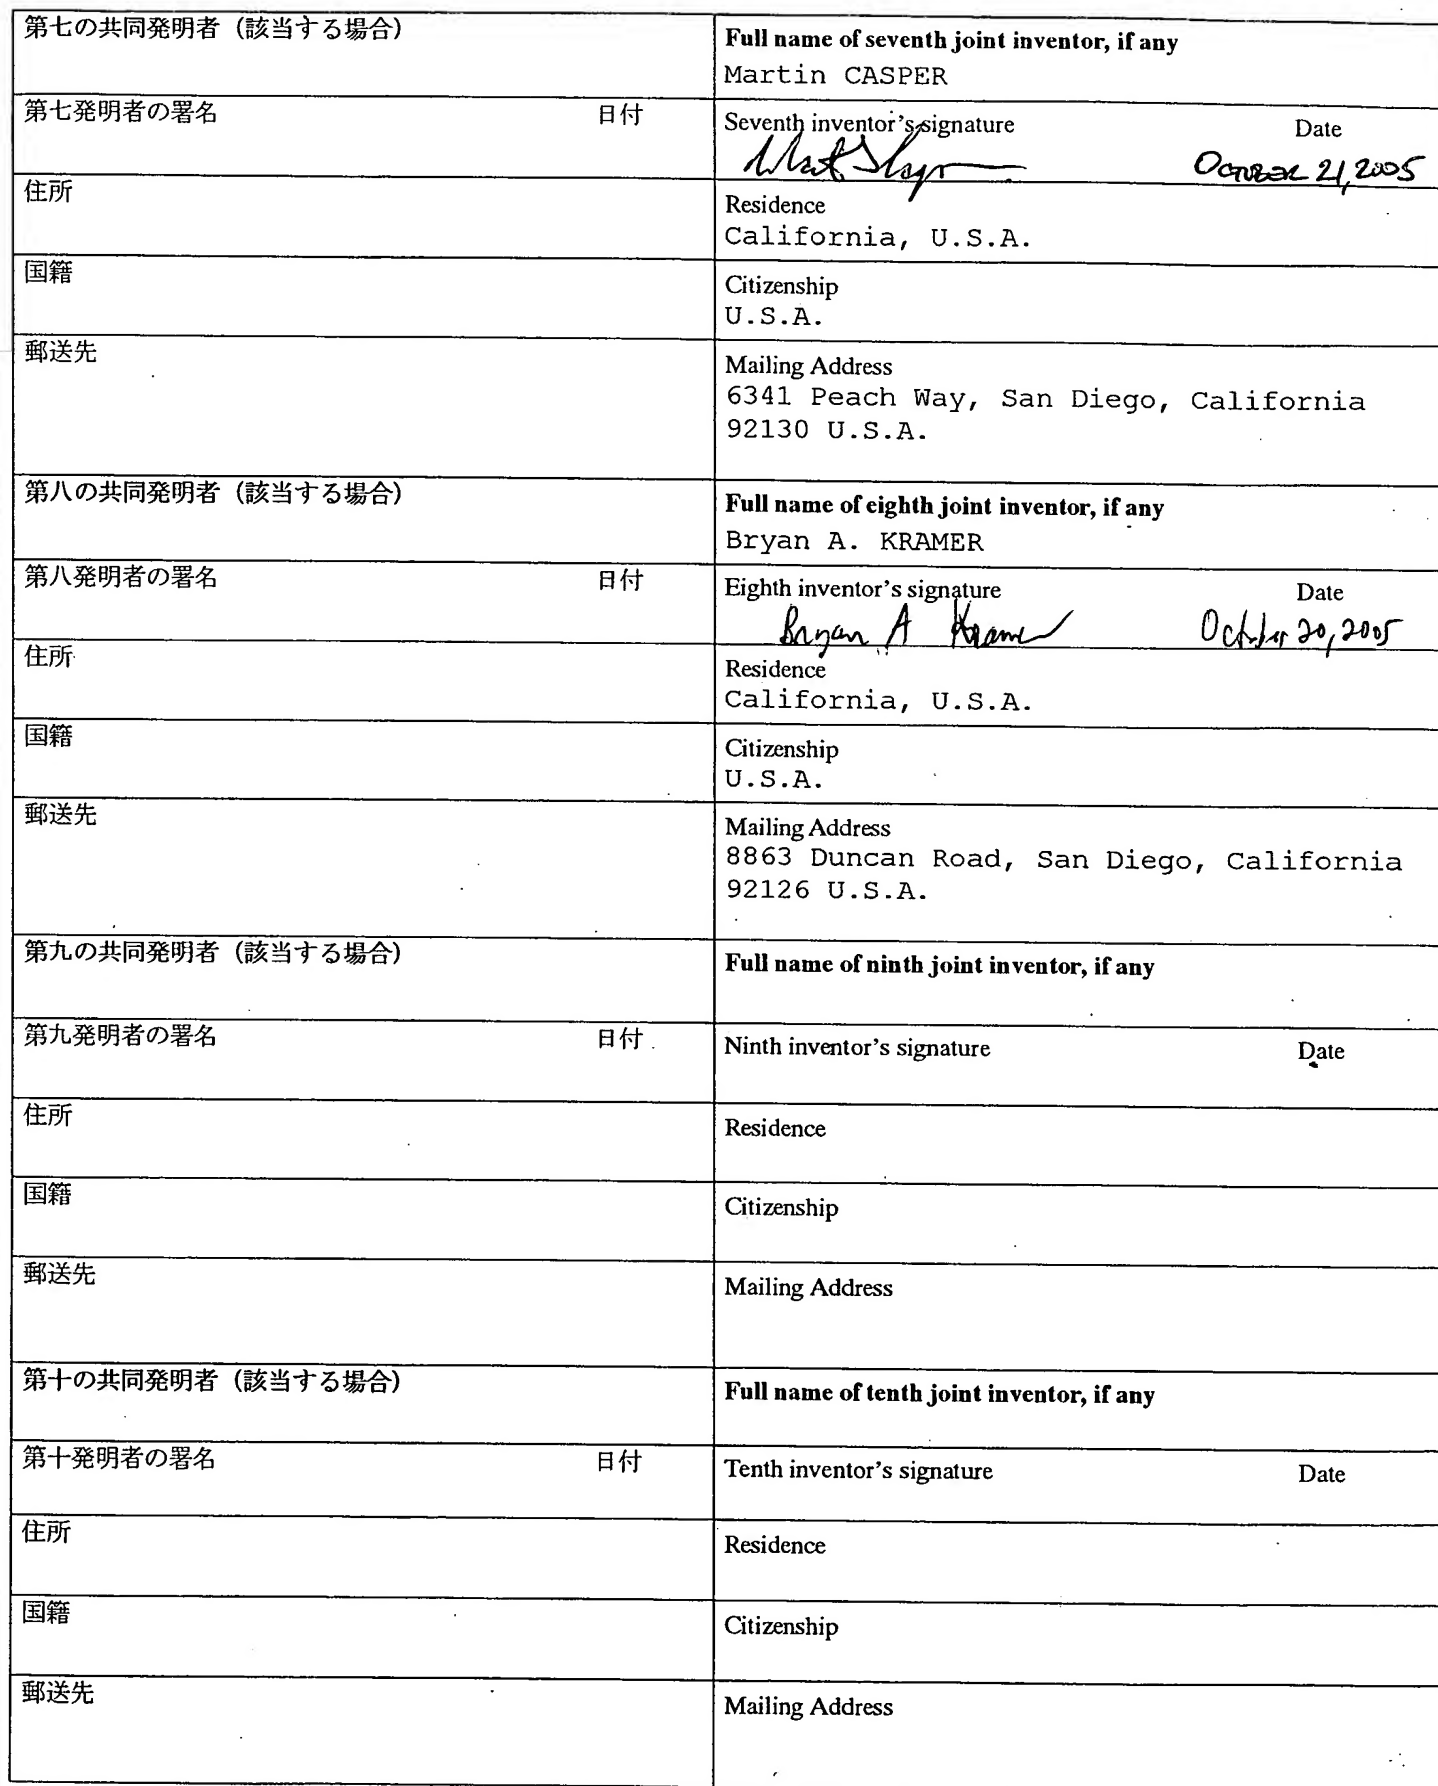 第七の共同発明者（該当する場合）
Full name of seventh joint inventor, if any
Martin CASPER
第七発明者の署名 日付
Seventh inventor's signature Date
OCTOBER 21, 2005
住所
Residence
California, U.S.A.
国籍
Citizenship
U.S.A.
郵送先
Mailing Address
6341 Peach Way, San Diego, California
92130 U.S.A.
第八の共同発明者（該当する場合）
Full name of eighth joint inventor, if any
Bryan A. KRAMER
第八発明者の署名 日付
Eighth inventor's signature Date
Bryan A Kramer October 20, 2005
住所
Residence
California, U.S.A.
国籍
Citizenship
U.S.A.
郵送先
Mailing Address
8863 Duncan Road, San Diego, California
92126 U.S.A.
第九の共同発明者（該当する場合）
Full name of ninth joint inventor, if any
第九発明者の署名 日付
Ninth inventor's signature Date
住所
Residence
国籍
Citizenship
郵送先
Mailing Address
第十の共同発明者（該当する場合）
Full name of tenth joint inventor, if any
第十発明者の署名 日付
Tenth inventor's signature Date
住所
Residence
国籍
Citizenship
郵送先
Mailing Address